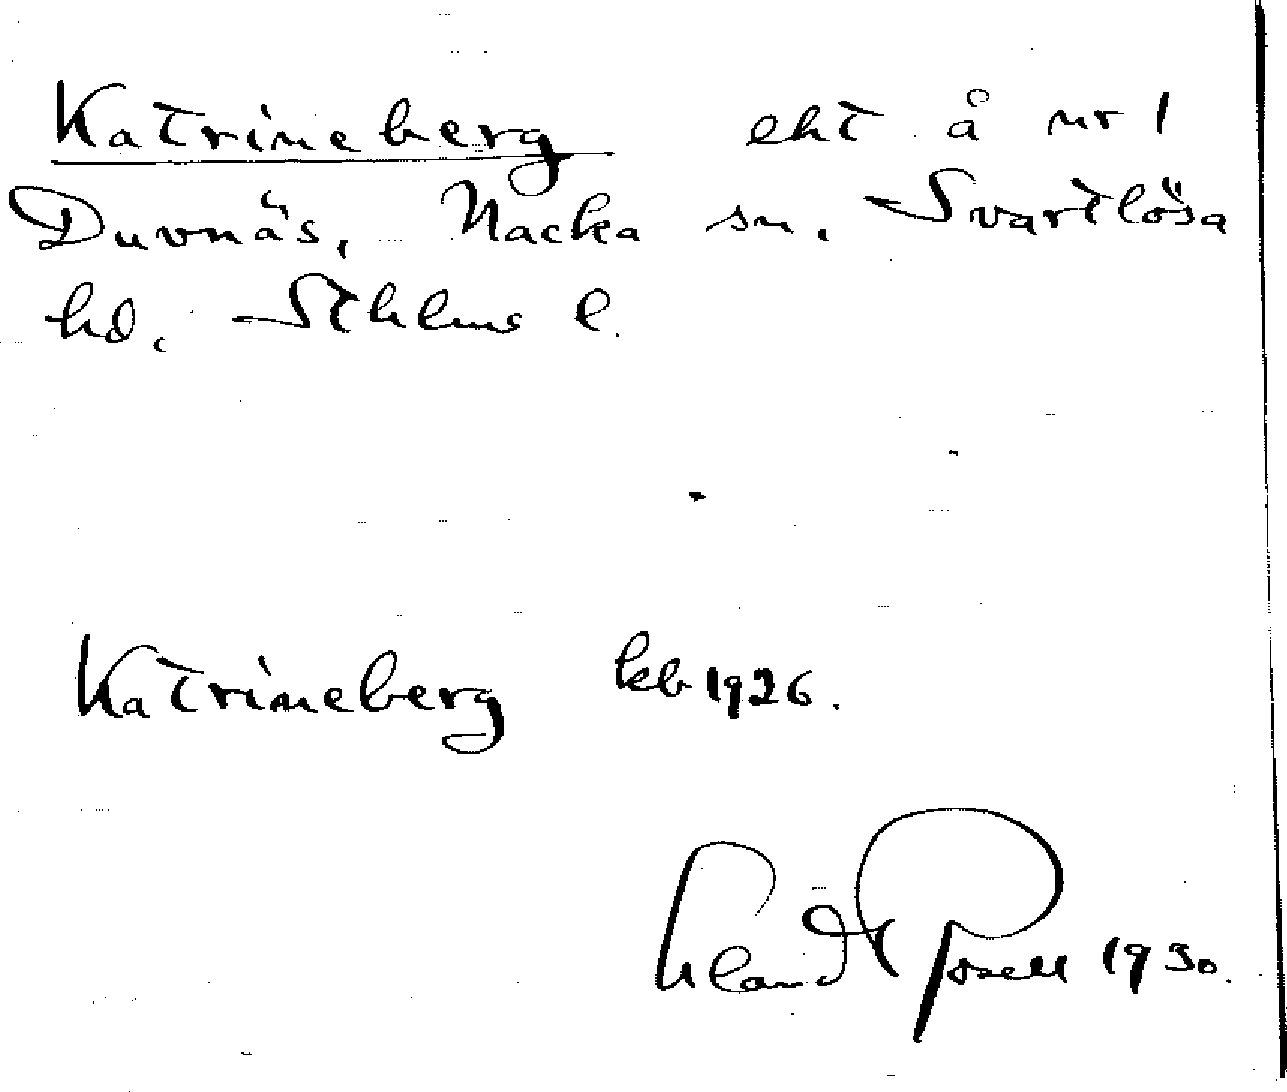 Katrineberg eht å nr 1
Duvnäs, Nacka sn. Svartlösa
hd. Sthlms l.
Katrineberg kb 1926.
Erland Rosell 1930.